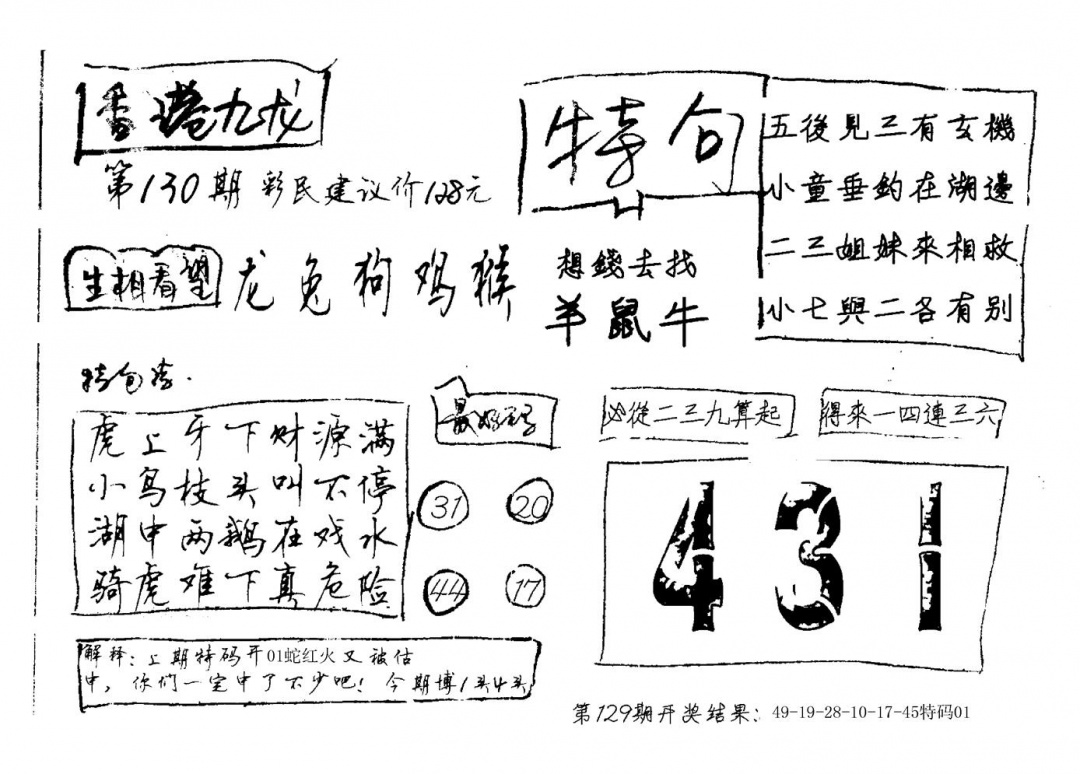 香港九龙
第130期 彩民建议价128元
生相看望 龙 兔 狗 鸡 猴
特句
五後見三有玄機
小童垂釣在湖邊
二三姐妹來相救
小七與二各有别
想錢去找
羊鼠牛
虎上牙下财源满
小鸟枝头叫不停
湖中两鹅在戏水
骑虎难下真危险
31 20
44 17
必從二三九算起
得來一四連三六
431
解释:上期特码开01蛇红火又被估
中,你们一定中了不少吧!今期博1头4头
第129期开奖结果:49-19-28-10-17-45特码01